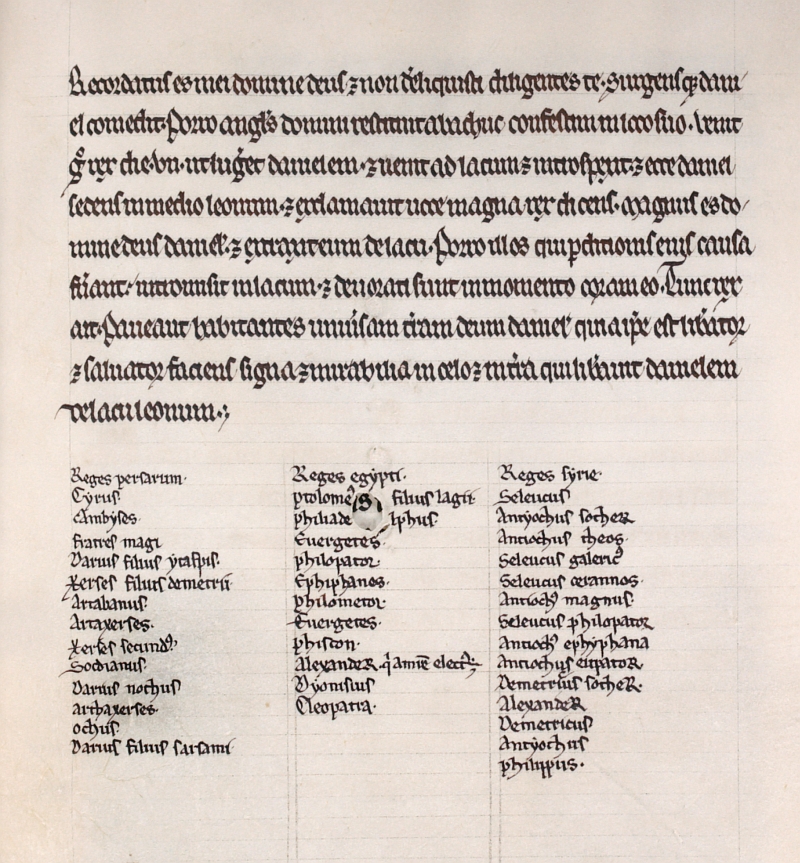 Recordatus es mei domine deus ⁊ non dẽliquisti diligentes te. Surgensqꝫ dani
el comedit. Porro angl's domini restituit abachuc confestim in loco suo. Venit
gͦ rex die .vii. ut lugẽt danielem. ⁊ uenit ad lacum ⁊ introspexit. ⁊ ecce daniel
sedens in medio leonum. ⁊ exclamauit uoce magna rex dicens. Magnus es do
mine deus daniel'. ⁊ extraxit eum de lacu. Porro illos qui ꝑditionis eius causa
fu̾ant. intromisit in lacum. ⁊ deuorati sunt in momento coram eo. Tunc rex
ait. Paueant habitantes uniu̾sam t̾ram deum daniel' quia ip̃e est lib̾ator
⁊ saluator faciens signa ⁊ mirabilia in celo ⁊ in t̾ra qui lib̾auit danielem
de lacu leonum.
Reges persarum.
Cyrus.
Cambyses.
fratres magi
Darius filius ytaspis.
Xerses filius demetrii
Artabanus.
Artaxerses.
Xerses secund'
Sodianus.
Darius nothus
arthaxerses.
ochus.
Darius filius sarsami
Reges egypti.
ptolome's filius lagii
philiadelphus.
Euergetes.
philopator.
Ephiphanes.
philometor.
Euergetes.
phiscon.
Alexander. q̾ a mr̃e elect'.
Dyonisius
Cleopatra.
Reges syrie.
Seleucus
Antyochus socher
Antiochus theos.
Seleucus galeric'
Seleucus cerannos.
Antioch' magnus.
Seleucus philopator
Antioch' ephyphana
Antiochus eupator.
Demetrius socher.
Alexander
Demetricus
Antyochus
philippus.